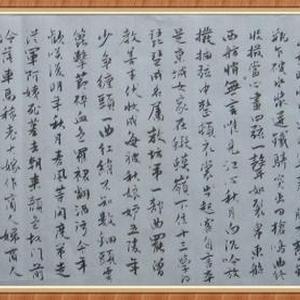 瓶乍破水漿迸鐵騎突出刀槍鳴曲終
收撥當心畫四弦一聲如裂帛東船
西舫悄無言唯見江心秋月白沉吟放
撥插弦中整頓衣裳起斂容自言本
是京城女家在蝦蟆嶺下住十三學得
琵琶成名屬教坊第一部曲罷曾
教善才伏妝成每被秋娘妒五陵年
少爭纏頭一曲紅綃不知數鈿頭雲
篦擊節碎血色羅裙翻酒污今年
歡笑復明年秋月春風等閑度弟走
從軍阿姨死暮去朝來顏色故門前
冷落車馬稀老大嫁作商人婦商人